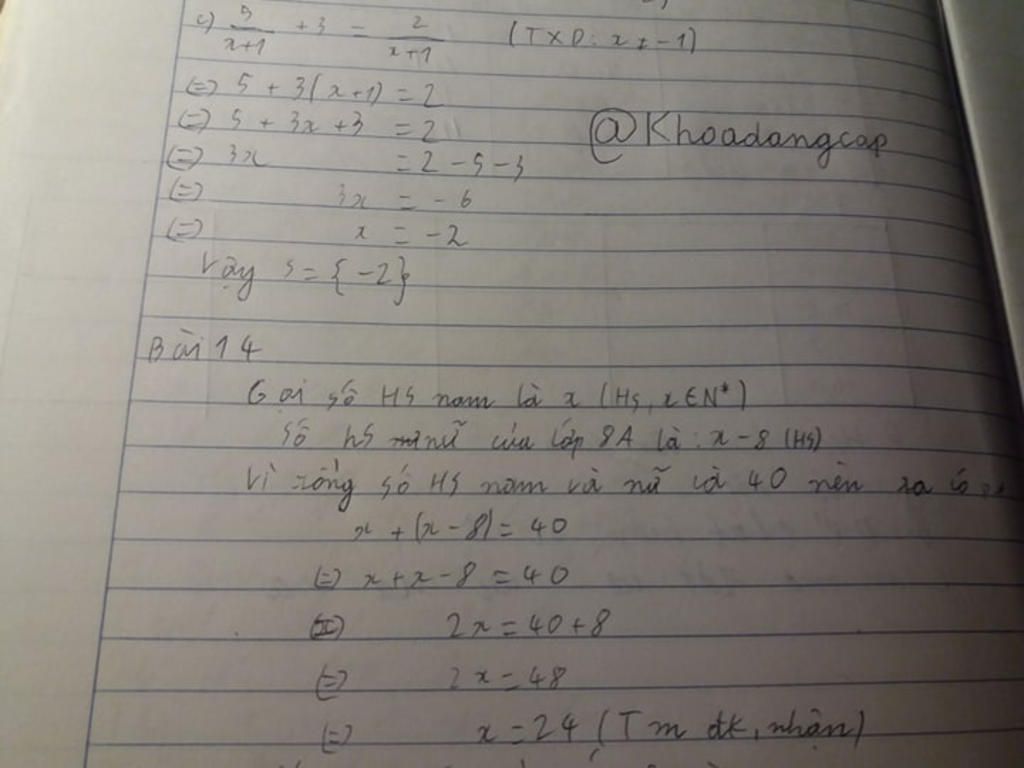 c) 5/(x+1) + 3 = 2/(x+1) (TXD: x ≠ -1)
(=) 5 + 3(x+1) = 2
(=) 5 + 3x + 3 = 2
@Khoadangcap
(=) 3x = 2 - 5 - 3
(=) 3x = -6
(=) x = -2
Vậy S = {-2}
Bài 14
Gọi số HS nam là x (HS, x ∈ N*)
Số hs nữ của lớp 8A là: x - 8 (HS)
Vì tổng số HS nam và nữ là 40 nên ta có
x + (x - 8) = 40
(=) x + x - 8 = 40
(=) 2x = 40 + 8
(=) 2x = 48
(=) x = 24 (Tm đk, nhận)